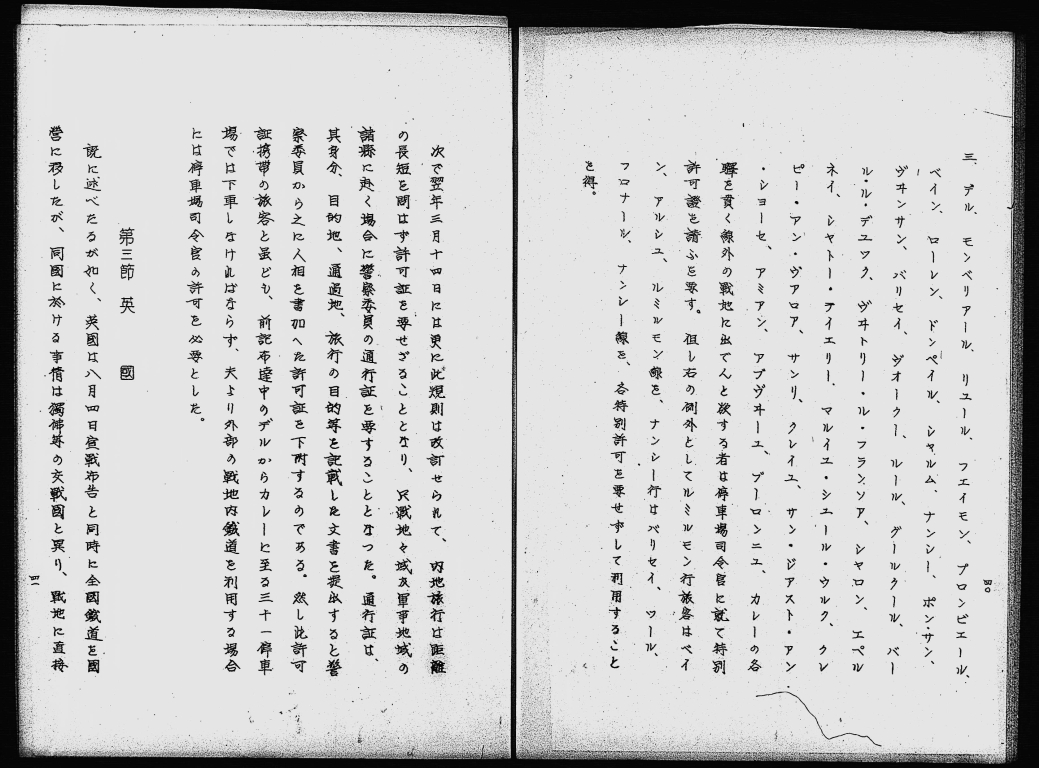 三、デル、モンベリアール、リユール、フエイモン、プロンビエール、
ベイン、ローレン、ドンペイル、シヤルム、ナンシー、ポン・サン、
ヴヰンサン、バリセイ、ジオークー、ルール、グールクール、バー
ル・ル・デユツク、ヴヰトリー・ル・フランソア、シヤロン、エペル
ネイ、シヤトー・テイエリー、マルイユ・シユール・ウルク、クレ
ピー・アン・ヴアロア、サンリ、クレイユ、サン・ジアスト・アン
・シヨーセ、アミアン、アブヴヰーユ、ブーロンニユ、カレーの各
驛を貫く線外の戦地に出でんと欲する者は停車場司令官に就て特別
許可證を請ふを要す。但し右の例外としてルミルモン行旅客はベイ
ン、アルシユ、ルミルモン線を、ナンシー行はバリセイ、ツール、
フロナール、ナンシー線を、各特別許可を要せずして利用すること
を得。
四〇
次で翌年三月十四日には更に此規則は改訂せられて、内地旅行は距離
の長短を問はず許可証を要せざることとなり、只戦地々域及軍事地域の
諸縣に赴く場合に警察委員の通行証を要することとなつた。通行証は、
其身分、目的地、通過地、旅行の目的等を記載した文書を提出すると警
察委員から之に人相を書加へた許可証を下附するのである。然し此許可
証携帯の旅客と虽ども、前記布達中のデルからカレーに至る三十一停車
場では下車しなければならず、夫より外部の戦地内鐵道を利用する場合
には停車場司令官の許可を必要とした。
第三節 英 國
説に述べたるが如く、英國は八月四日宣戦布告と同時に全國鐵道を國
營に移したが、同國に於ける事情は獨佛等の交戦國と異り、戰地に直接
四一